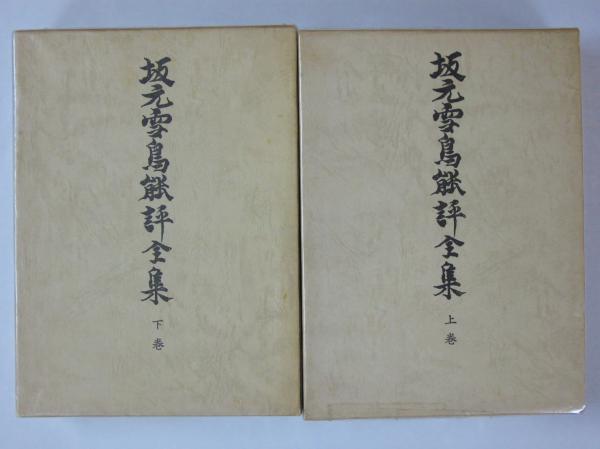 坂元雪鳥能評全集
上巻
坂元雪鳥能評全集
下巻